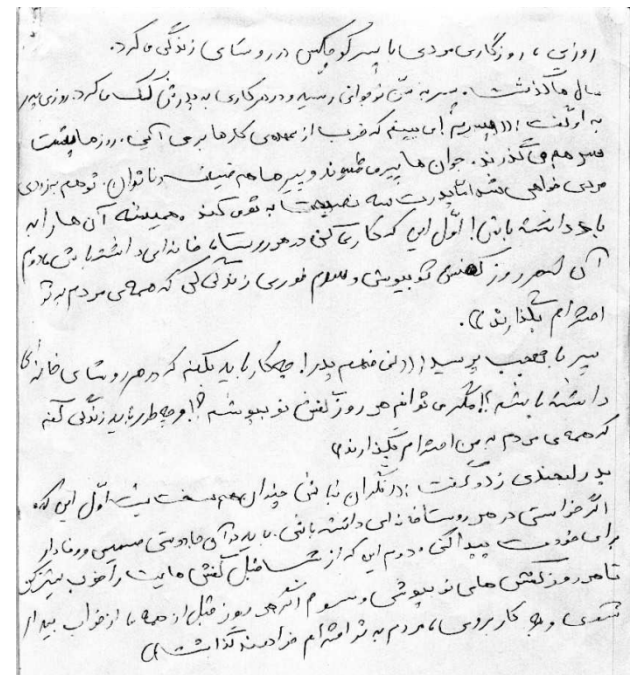 روزی، روزگاری مردی با پسر کوچکش در روستای زندگی می‌کرد.
سال ها گذشت. پسر به سن نوجوانی رسید و در هر کاری به پدرش کمک می‌کرد. روزی پدر
به او گفت: ((پسرم! می بینم که خوب از عهده‌ی کارها برمی آئی. روزها پشت
سر هم می گذرند. جوان ها پیر می شوند و پیرها هم ضعیف و ناتوان. تو هم بزودی
مردی خواهی شد اما پدرت سه نصیحت به تو می کند. همیشه آن ها را به
یاد داشته باش! اول این که کاری کنی در هر روستا، خانه ای داشته باشی، دوم
آن که هر روز کفش نو بپوشی و سوم طوری زندگی کنی که همه‌ی مردم به تو
احترام بگذارند)).
پسر با تعجب پرسید: ((نمی فهمم پدر! چکار باید بکنم که در هر روستای خانه ای
داشته باشم؟! مگر می توانم هر روز کفش نو بپوشم؟! و چه طور باید زندگی کنم
که همه‌ی مردم به من احترام بگذارند))
پدر لبخندی زد و گفت: ((نگران نباش چندان هم سخت نیست اول این که
اگر خواستی در هر روستا خانه ای داشته باشی، باید در آن جا دوستی صمیمی و وفادار
برای خودت پیدا کنی و دوم این که از شب قبل کفش هایت را خوب تمیز کن
تا هر روز کفش های نو بپوشی و سوم اگر هر روز قبل از همه از خواب بیدار
شدی و به کار بروی، مردم به تو احترام خواهند گذاشت))